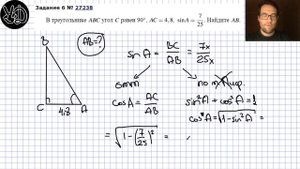 Задание 6 № 27238
В треугольнике ABC угол C равен 90°, AC = 4,8, sinA = 7/25. Найдите AB.
AB=?
B
C
A
4,8
sin A = BC/AB = 7x/25x
cosA = AC/AB
sin²A + cos²A = 1
cos A = √1-sin²A =
= √1-(7/25)² =